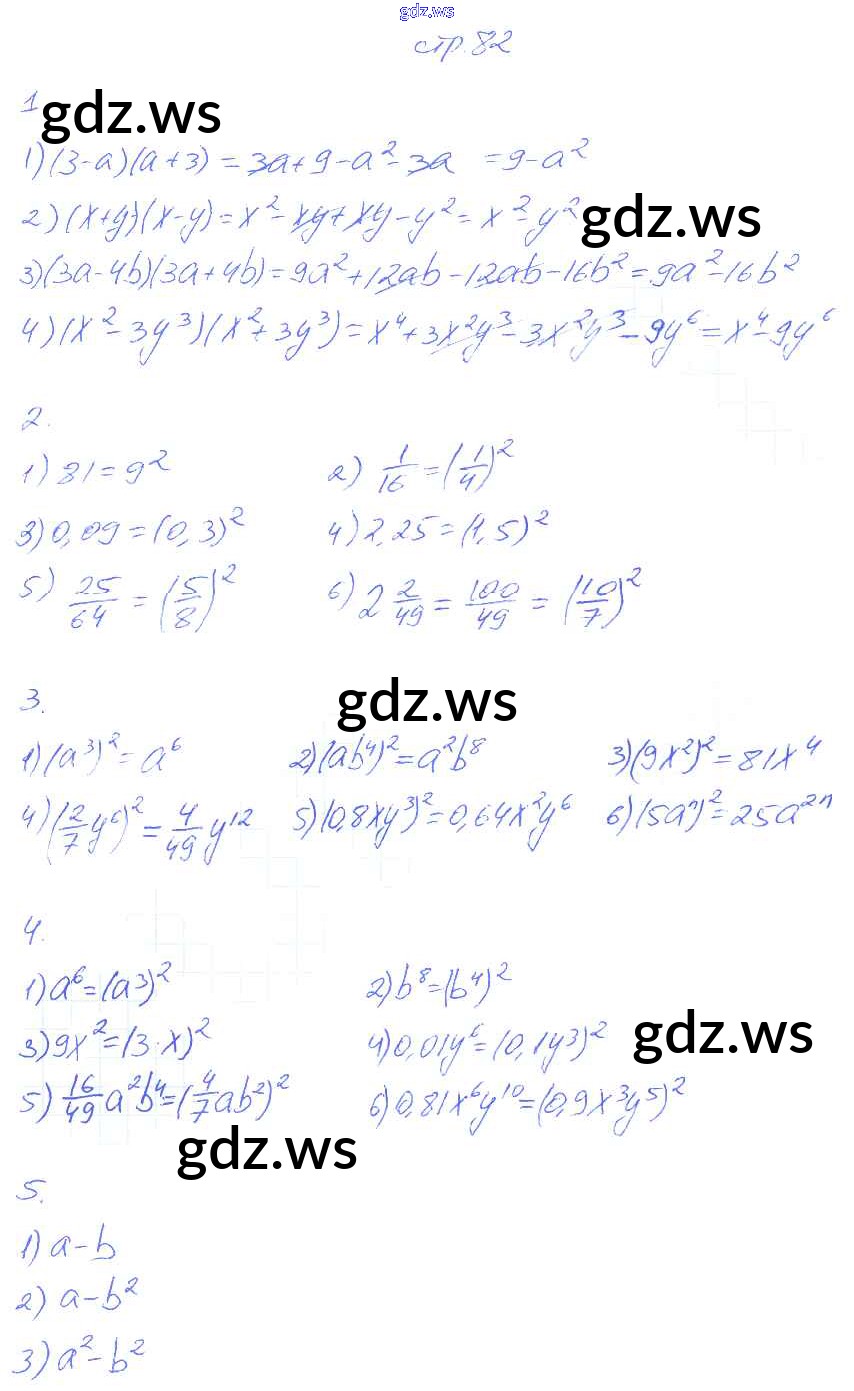 gdz.ws
стр. 82
1 gdz.ws
1) (3-a)(a+3) = 3a+9-a²-3a = 9-a²
2) (x+y)(x-y) = x²-xy+xy-y² = x²-y² gdz.ws
3) (3a-4b)(3a+4b) = 9a²+12ab-12ab-16b² = 9a²-16b²
4) (x²-3y³)(x²+3y³) = x⁴+3x²y³-3x²y³-9y⁶ = x⁴-9y⁶
2.
1) 81 = 9² 2) 1/16 = (1/4)²
3) 0,09 = (0,3)² 4) 2,25 = (1,5)²
5) 25/64 = (5/8)² 6) 2 2/49 = 100/49 = (10/7)²
3. gdz.ws
1) (a³)² = a⁶ 2) (ab⁴)² = a²b⁸ 3) (9x²)² = 81x⁴
4) (2/7 y⁶)² = 4/49 y¹² 5) (0,8xy³)² = 0,64x²y⁶ 6) (5aⁿ)² = 25a²ⁿ
4.
1) a⁶ = (a³)² 2) b⁸ = (b⁴)²
3) 9x² = (3·x)² 4) 0,01y⁶ = (0,1y³)² gdz.ws
5) 16/49 a²b⁴ = (4/7 ab²)² 6) 0,81x⁶y¹⁰ = (0,9x³y⁵)²
gdz.ws
5.
1) a-b
2) a-b²
3) a²-b²